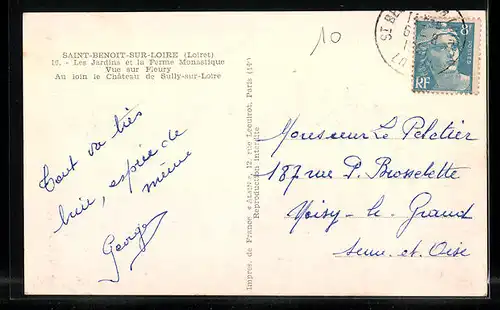 SAINT-BENOIT-SUR-LOIRE (Loiret)
10. - Les Jardins et la Ferme Monastique
Vue sur Fleury
Au loin le Château de Sully-sur-Loire
10
Tout va très
bien, espère de
même
Georges
Impres. de France «Alain», 12, rue Lecuirot, Paris (14e)
Reproduction interdite
ST BE
8F
RF
Monsieur Le Peletier
187 rue P. Brossolette
Noisy-le-Grand
Seine-et-Oise